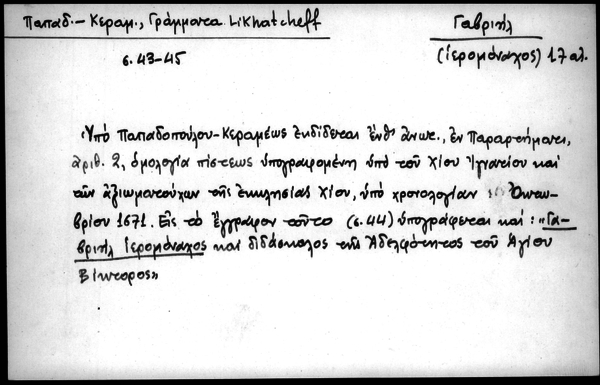 Παπαδ.-Κεραμ., Γράμματα Likhatcheff
Γαβριήλ
(ἱερομόναχος) 17 αἰ.
σ. 43-45
Ὑπὸ Παπαδοπούλου-Κεραμέως ἐκδίδεται ἔνθ' ἄνωτ., ἐν Παραρτήματι,
ἀριθ. 2, ὁμολογία πίστεως ὑπογραφομένη ὑπὸ τοῦ Χίου Ἰγνατίου καὶ
τῶν ἀξιωματούχων τῆς ἐκκλησίας Χίου, ὑπὸ χρονολογίαν Ὀκτω-
βρίου 1671. Εἰς τὸ ἔγγραφον τοῦτο (σ. 44) ὑπογράφεται καί: «Γα-
βριὴλ ἱερομόναχος καὶ διδάσκαλος τῆς Ἀδελφότητος τοῦ Ἁγίου
Βίκτορος»